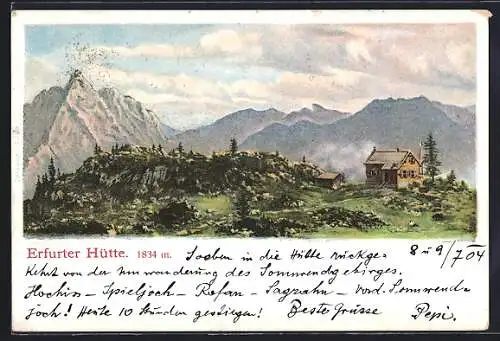 Erfurter Hütte. 1834 m.
Soeben in die Hütte rückge-
8 u 9/7 04
kehrt von der Umwanderung des Sonnwendgebirges.
Hochiss - Spieljoch - Rofan - Sagzahn - Vord. Sonnwend-
joch! Heute 10 Stunden gestiegen! Beste Grüsse Pepi.